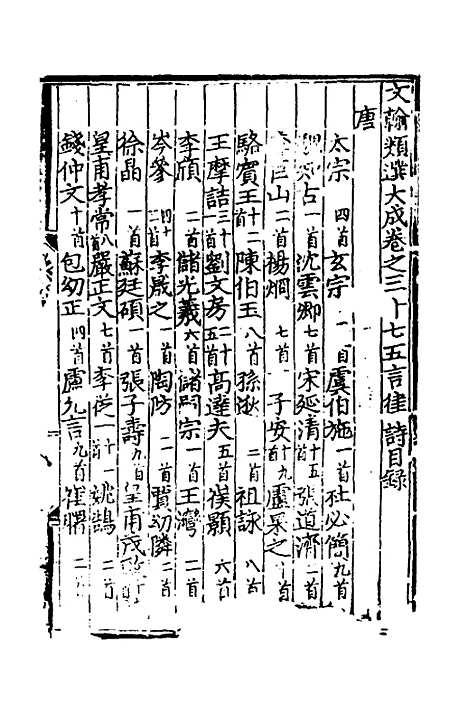 文翰類選大成卷之三十七五言律詩目錄
唐
太宗 四首 玄宗 一首 虞伯施 一首 杜必簡 九首
占 一首 沈雲卿 七首 宋延清 十五首 張道濟 一首
巨山 二首 楊烱 七首 子安 十九首 盧采之 首
駱賓王 十二首 陳伯玉 八首 孫逖 二首 祖詠 八首
王摩詰 三十一首 劉文房 二十五首 高達夫 五首 崔顥 六首
李頎 二首 儲光羲 六首 宗 一首 王灣 二首
岑參 四十二首 李嵗之 一首 陶防 一首 賈幼隣 一首
徐晶 一首 蘇廷碩 一首 張子壽 九首 皇甫茂
皇甫孝常 八首 嚴正文 七首 李從一 十一首 姚鵠 二首
錢仲文 十首 包幼正 四首 盧允言 九首 崔曙 二